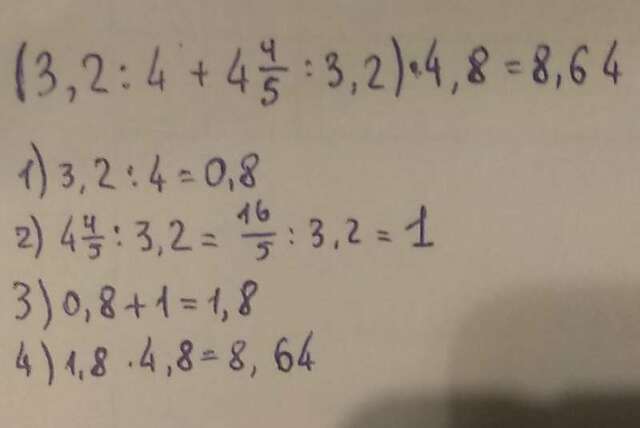 (3,2 : 4 + 4 4/5 : 3,2) · 4,8 = 8,64
1) 3,2 : 4 = 0,8
2) 4 4/5 : 3,2 = 16/5 : 3,2 = 1
3) 0,8 + 1 = 1,8
4) 1,8 · 4,8 = 8,64